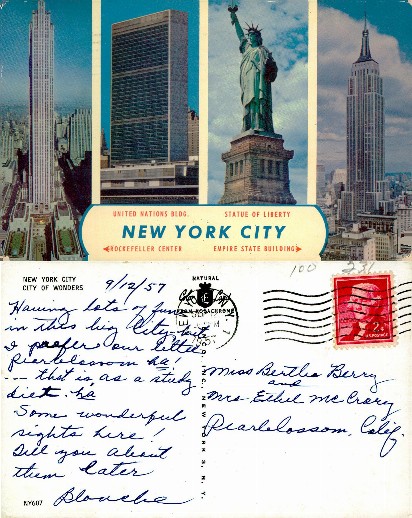 UNITED NATIONS BLDG. STATUE OF LIBERTY
NEW YORK CITY
ROCKEFELLER CENTER EMPIRE STATE BUILDING
NEW YORK CITY
CITY OF WONDERS
9/12/57
NATURAL
Color Card
FROM KODACHROME
Having lots of fun
in this big City - but
I prefer our little
Pearblossom ha!
-- that is as a steady
diet. ha
Some wonderful
sights here!
Tell you about
them later
Blanche
Miss Bertha Berry
and
Mrs. Ethel McCrary
Pearblossom, Calif.
NEW YORK
1957
2¢
100
NY607